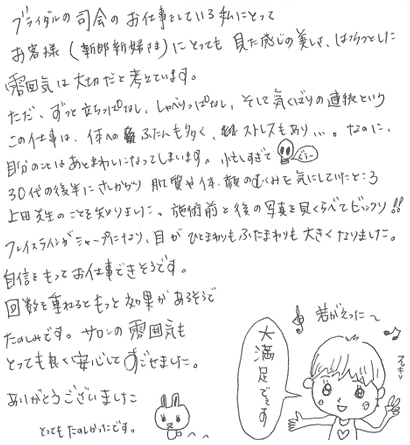 ブライダルの司会のお仕事をしている私にとって
お客様(新郎新婦さま)にとっても見た感じの美しさ、はつらつとした
雰囲気は大切だと考えています。
ただ、ずっと立ちっぱなし、しゃべりっぱなし、そして気くばりの連続という
この仕事は、体へのふたんも多く、ストレスもあり…。なのに、
自分のことはあとまわしになってしまいます。忙しすぎて
30代の後半にさしかかり肌質や体、顔のむくみを気にしていたところ
上田先生のことを知りました。施術前と後の写真を見くらべてビックリ!!
フェイスラインがシャープになり、目がひとまわりもふたまわりも大きくなりました。
自信をもってお仕事できそうです。
回数を重ねるともっと効果があるそうで
たのしみです。サロンの雰囲気も
とっても良く安心してすごせました。
ありがとうございました
とってもたのしかったです。
若がえった〜
大満足です